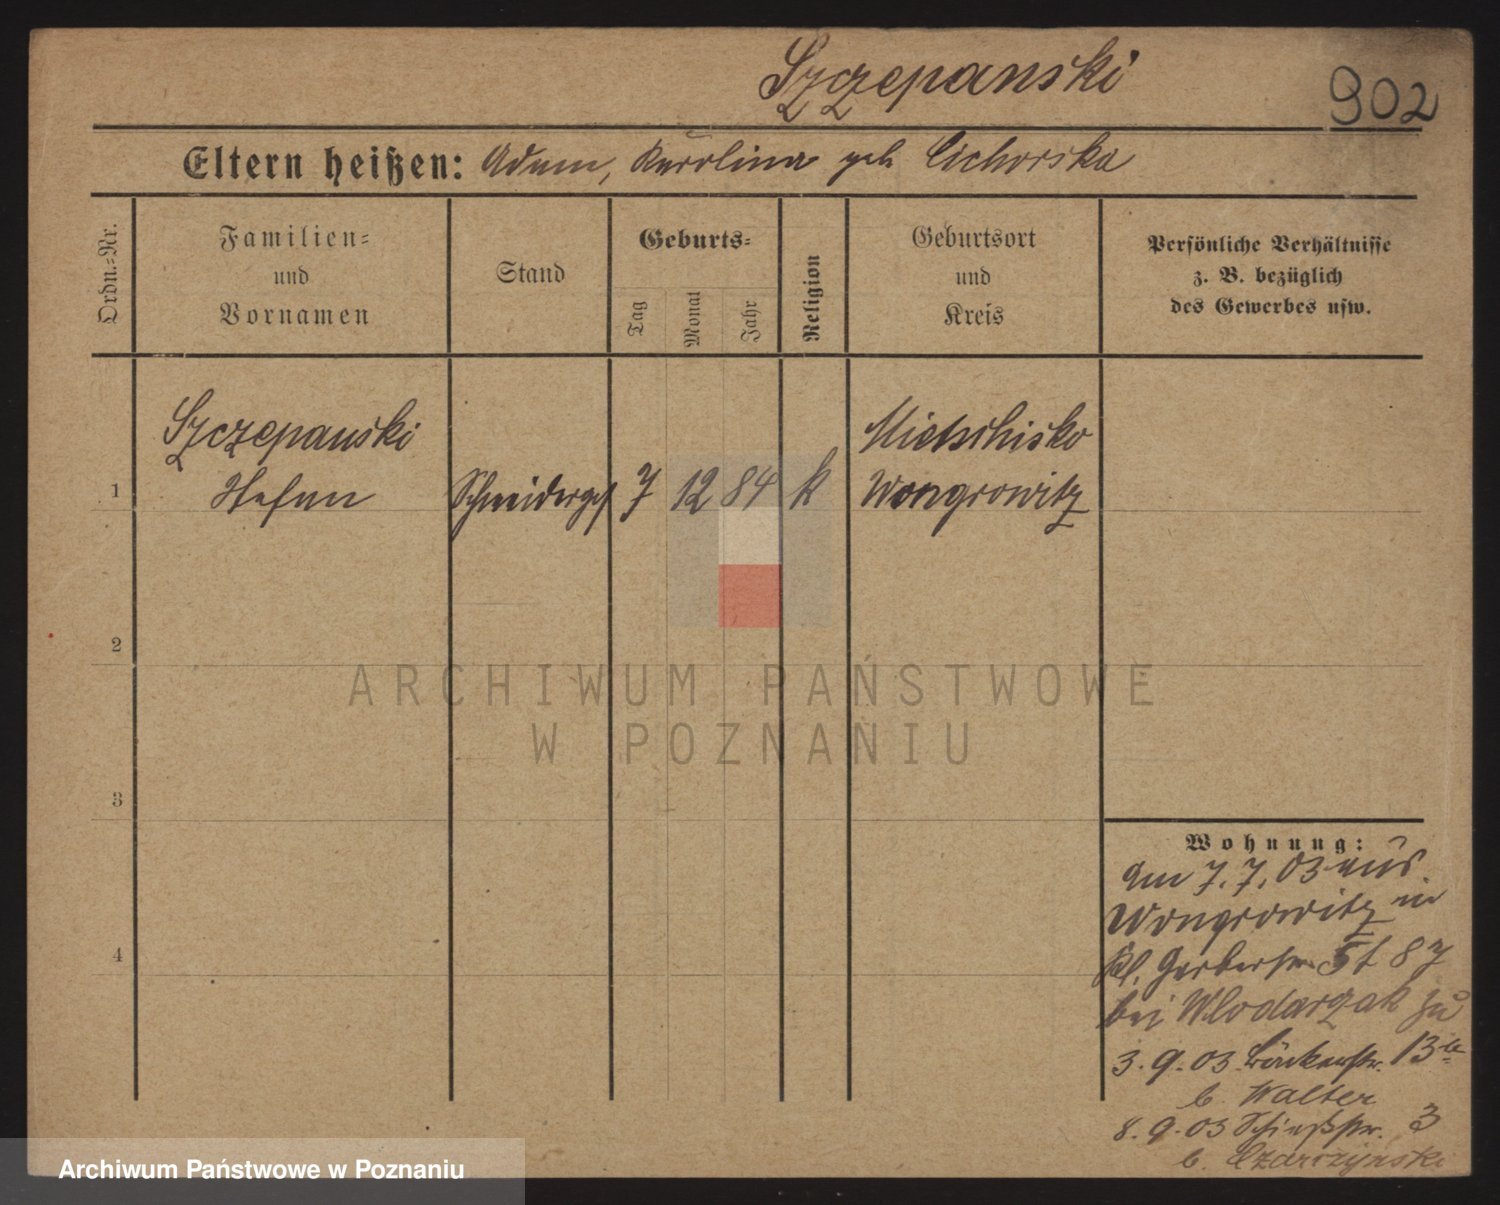 Szczepanski
902
Eltern heißen: Adam, Karolina geb Cichorska
Ordn.-Nr.
Familien-
und
Vornamen
Stand
Geburts-
Tag
Monat
Jahr
Religion
Geburtsort
und
Kreis
Persönliche Verhältnisse
z. B. bezüglich
des Gewerbes usw.
1
Szczepanski
Stefan
Schneiderges
7
12
84
k
Mietschisko
Wongrowitz
2
3
4
ARCHIWUM PAŃSTWOWE
W POZNANIU
Wohnung:
am 7.7.03 aus
Wongrowitz in
Kl. Gerberstr. 87
bei Wlodarzak zu
3.9.03 Bäckerstr. 13
b. Walter
8.9.03 Schießstr. 3
b. Czarczynski
Archiwum Państwowe w Poznaniu